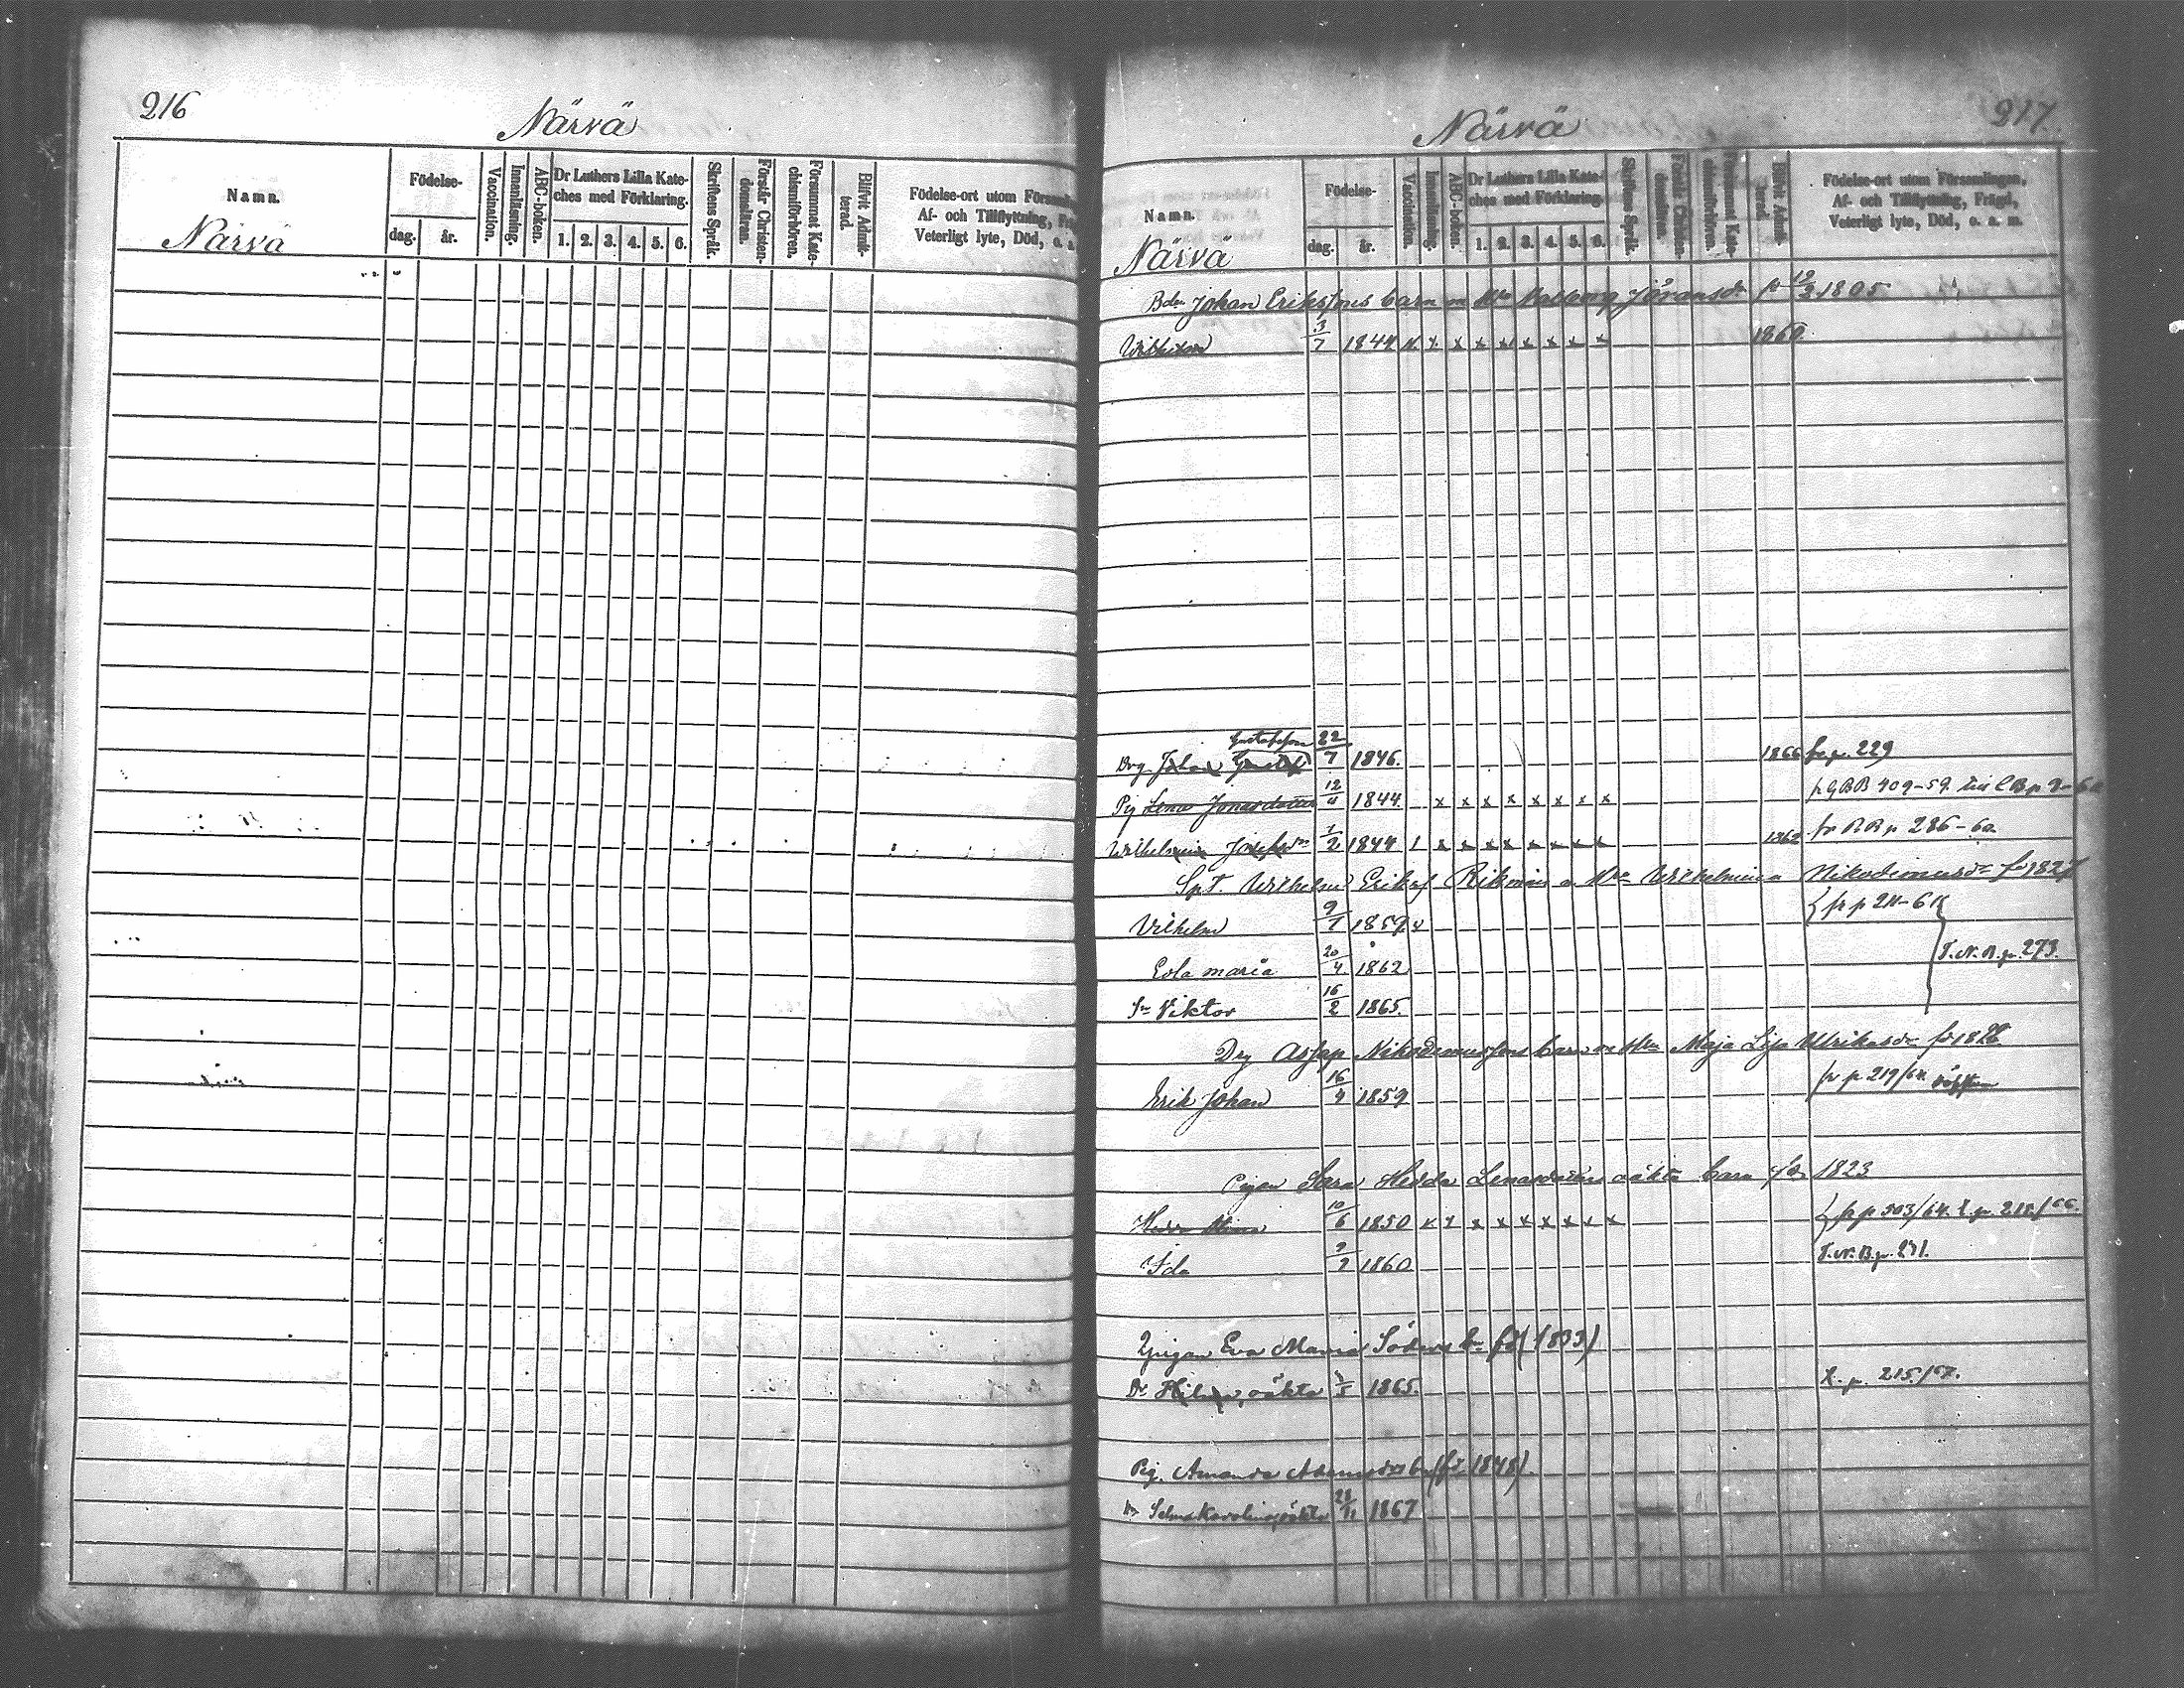 216
Närvä
Namn.
Närvä
Födelse-
dag.
år.
Vaccination.
Innanläsning.
ABC-boken.
Dr Luthers Lilla Kate-
ches med Förklaring.
1. 2. 3. 4. 5. 6.
Skriftens Språk.
Förstår Christen-
domsläran.
Försummat Kate-
chismiförhören.
Blifvit Admit-
terad.
Födelse-ort utom Församl
Af- och Tillflyttning, Fr
Veterligt lyte, Död, o. a.
217.
Närvä
Namn.
Närvä
Födelse-
dag.
år.
Vaccination.
Innanläsning.
ABC-boken.
Dr Luthers Lilla Kate-
ches med Förklaring.
1. 2. 3. 4. 5. 6.
Skriftens Språk.
Förstår Christen-
domsläran.
Försummat Kate-
chismiförhören.
Blifvit Admit-
terad.
Födelse-ort utom Församlingen,
Af- och Tillflyttning, Frägd,
Veterligt lyte, Död, o. a. m.
Johan Eriksons barn Jöransdr 1805
3/7 1844 x x x x x x x x 1860
Gustafsson
Drg Johan Gustaf 22/7 1846. 1866 p. 229
Pig Lena Jonasdotter 12/4 1844 x x x x x x x x
Wilhelmina Josefsdr 1/2 1844 1 x x x x x x x x 1862 fr p 286-62
Wilhelm Wilhelmina Nikodemusdr 1827
Vilhelm 9/1 1859 fr p 211-64
Eva Maria 20/4 1862 T.N.B.p. 273.
Sn Viktor 16/2 1865.
Drg Asjap Nikodemussons barn Maja Lisa Ulrikasdr
Erik Johan 16/4 1859 fr p 219/64
Pigan Sara Hedda Lenasdotters oäkta barn 1823
10/6 1850 x x x x x x x x fr p 303/64. T. p. 218/66.
Ida 1860 T.N.B.p. 271.
Eva Maria (1833)
Dr Hilma, oäkta 1865. 215/67.
Pig. Amanda (1848).
Dr Selma Karolina, oäkta 28/11 1867